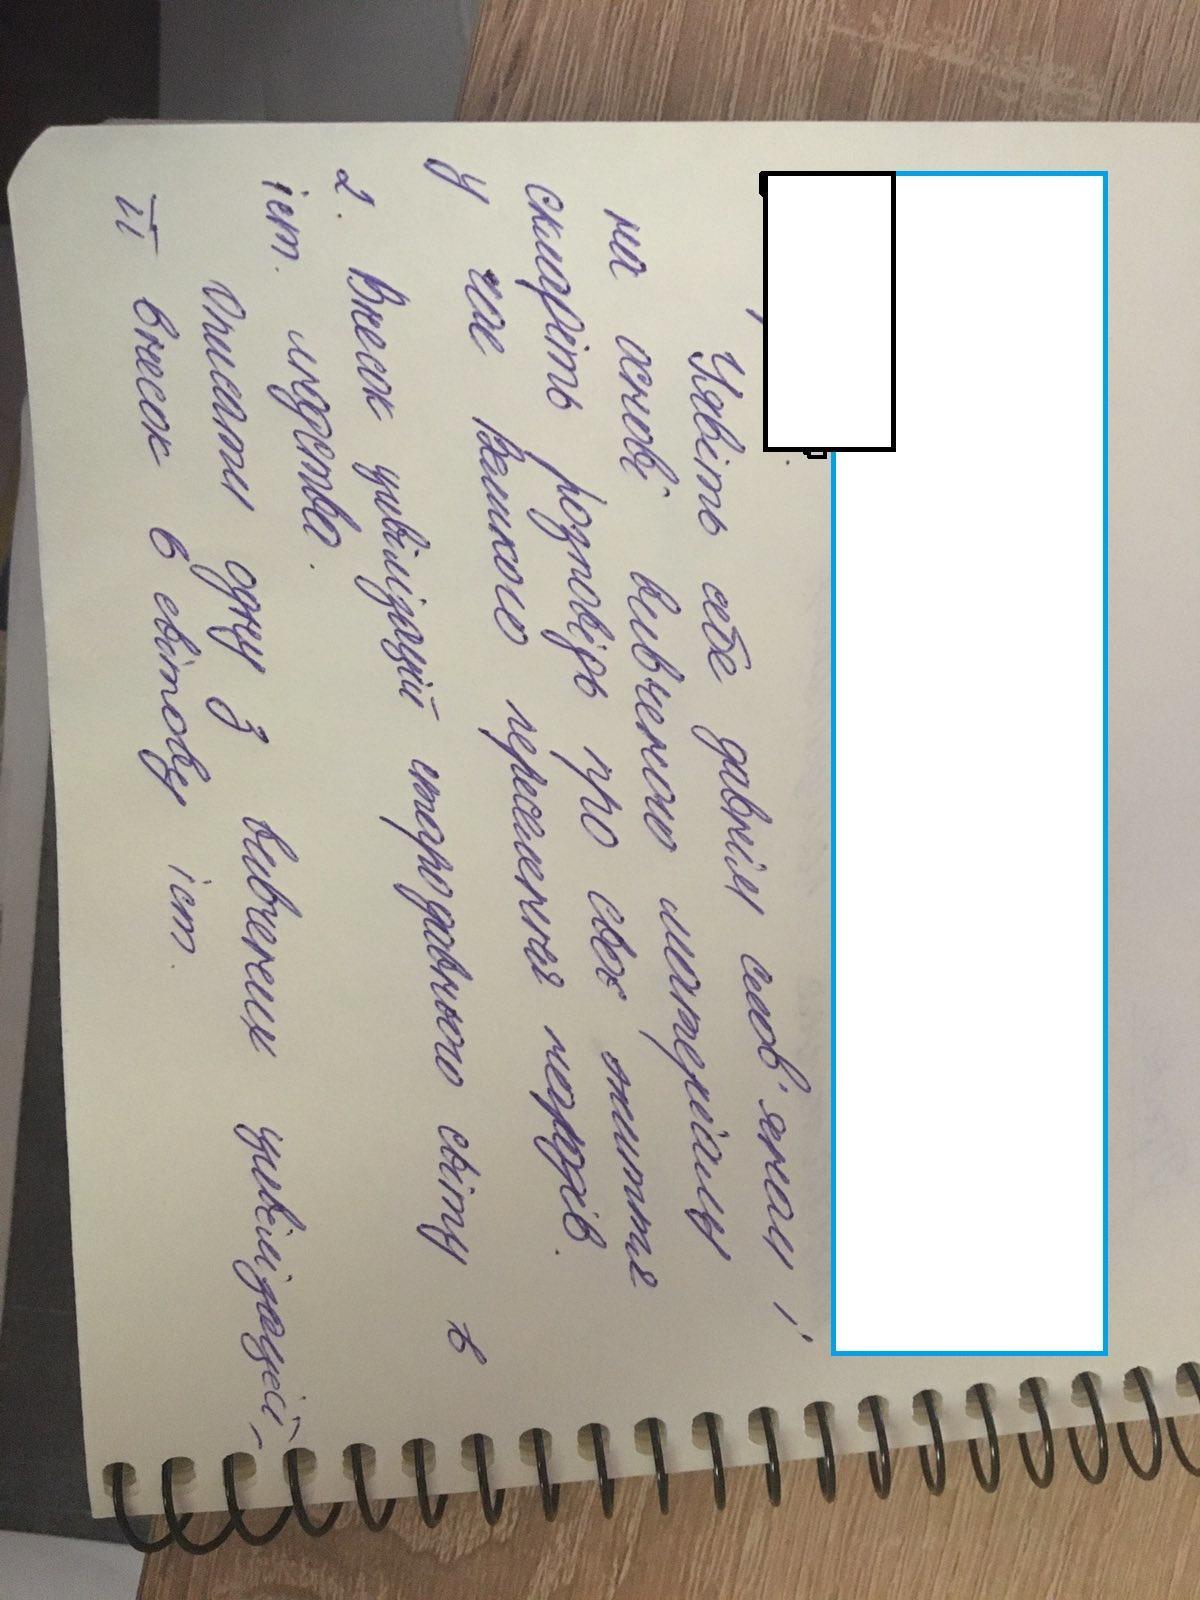 Уявіть себе давнім слов'яном і
на основі вивченого матеріалы
складіть розповідь про своє життя
у час Великого переселення народів.
2. Внесок цивілізацій стародавнього світу в
іст. людства.
Описати одну з вивчених цивілізацій,
її внесок в світову іст.